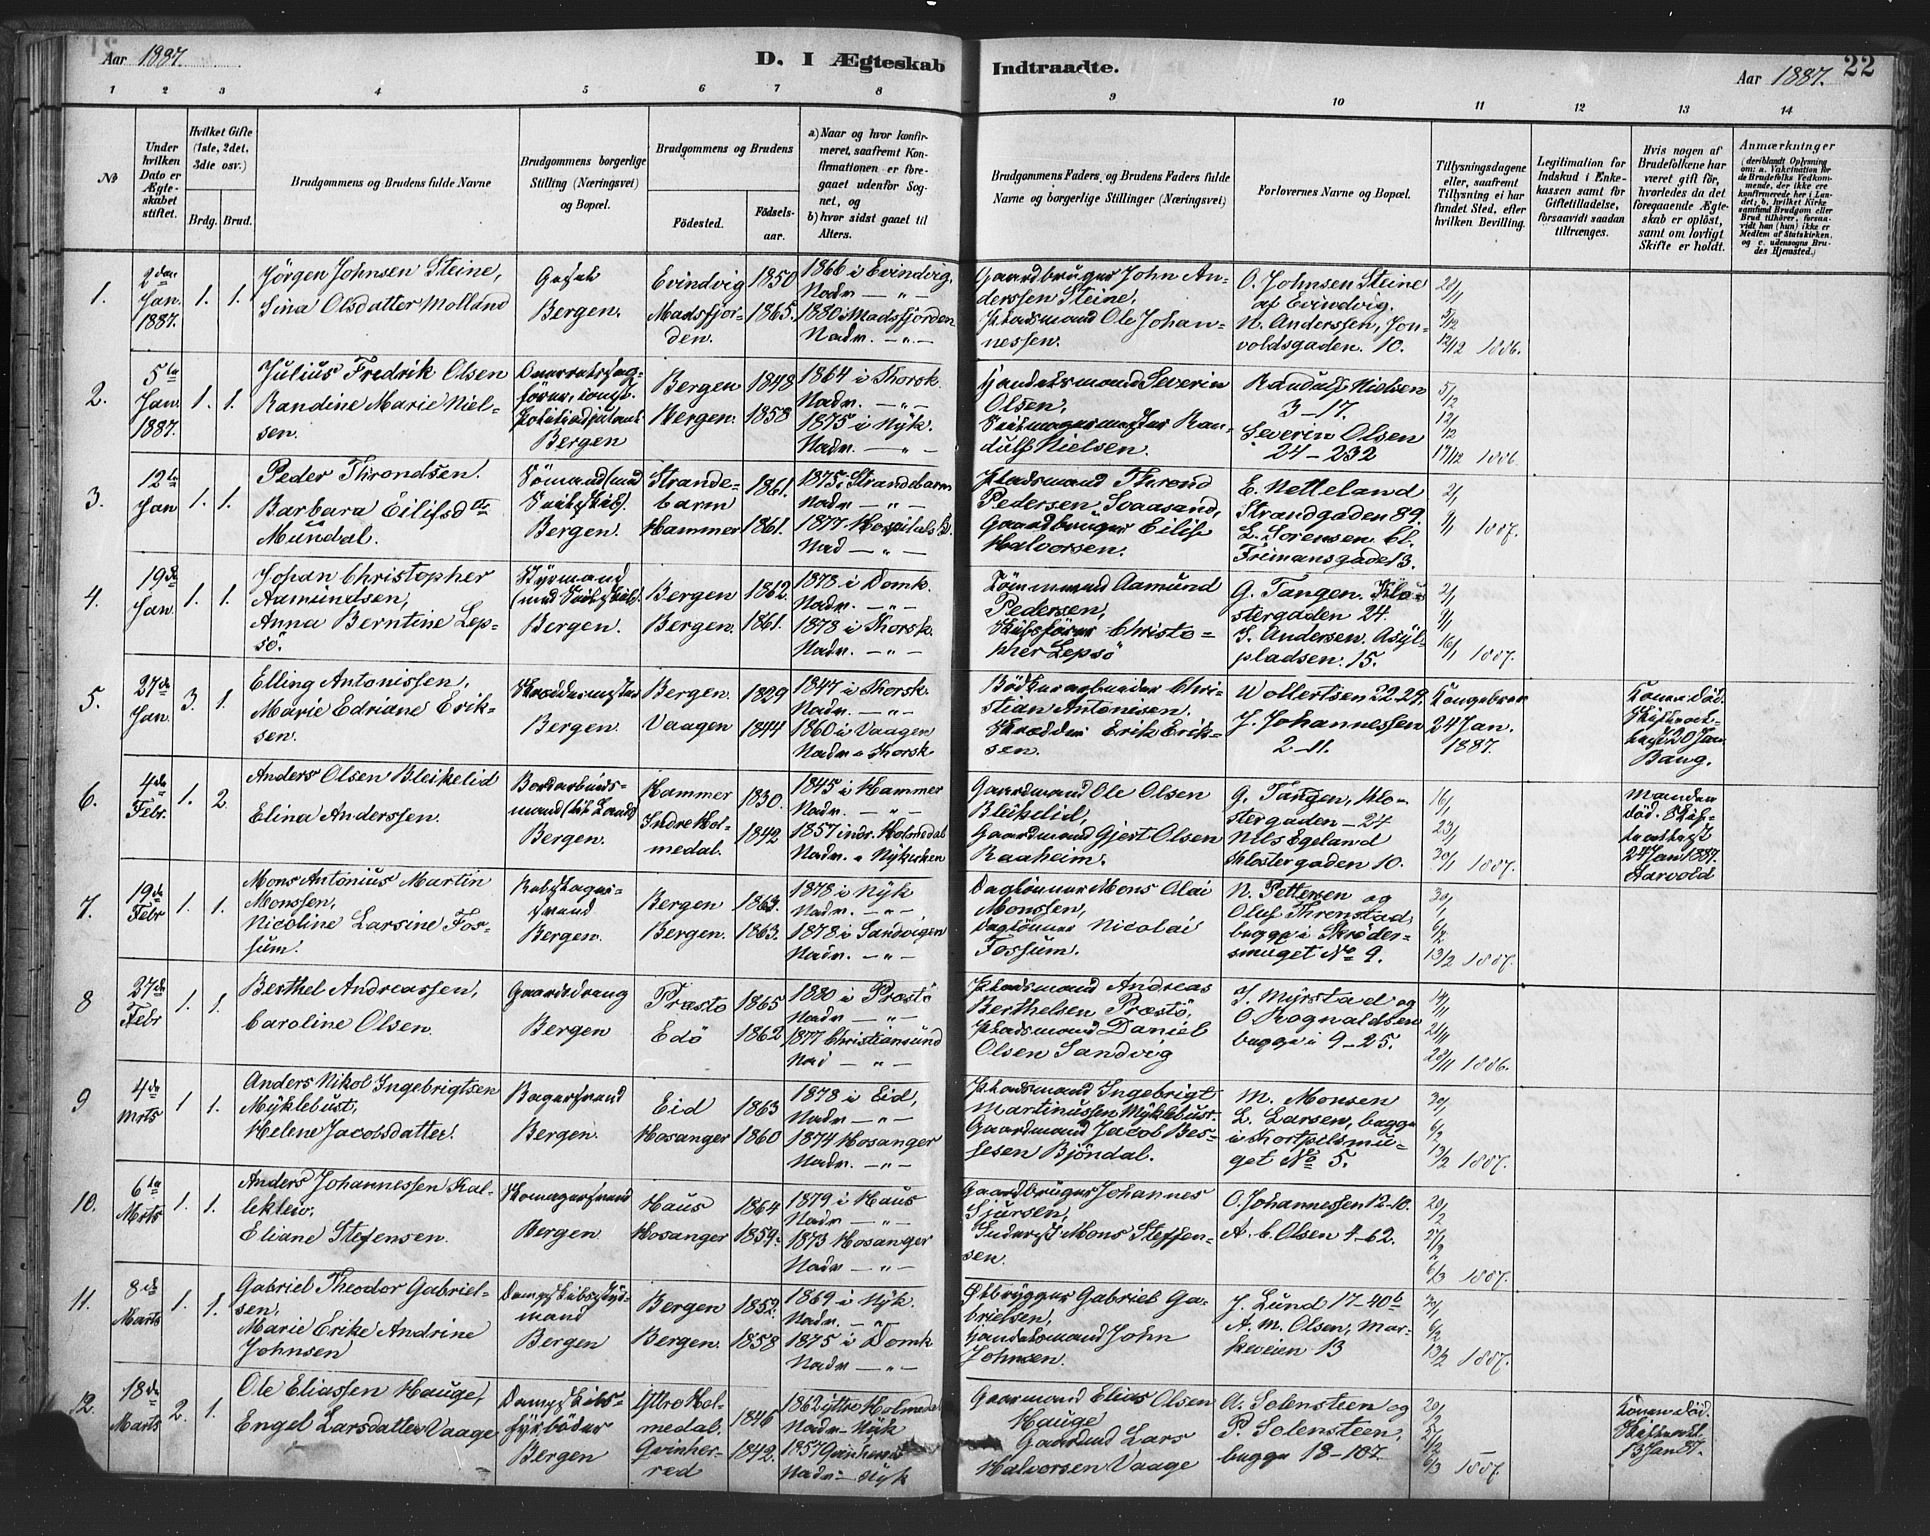 Aar 1887.
D. I Ægteskab Indtraadte.
Aar 1887.
22
1 2 3 4 5 6 7 8 9 10 11 12 13 14
No
Under hvilken Dato er Ægteskabet stiftet.
Hvilket Gifte (1ste, 2det, 3die osv.)
Brdg. Brud.
Brudgommens og Brudens fulde Navne
Brudgommens borgerlige Stilling (Næringsvei) og Bopæl.
Brudgommens og Brudens
Fødested.
Fødselsaar.
a) Naar og hvor konfirmeret, saafremt Konfirmationen er foregaaet udenfor Sognet, og
b) hvor sidst gaaet til Alters.
Brudgommens Faders og Brudens Faders fulde Navne og borgerlige Stillinger (Næringsvei)
Forlovernes Navne og Bopæl.
Tillysningsdagene eller, saafremt Tillysning ei har fundet Sted, efter hvilken Bevilling.
Legitimation for Indskud i Enkekassen samt for Giftetilladelse, forsaavidt saadan tiltrænges.
Hvis nogen af Brudefolkene har været gift før, hvorledes da det foregaaende Ægteskab er opløst, samt om lovligt Skifte er holdt.
Anmærkninger
(deriblandt Oplysning om: a. Vakcination for de Brudefolks Vedkommende, der ikke ere konfirmerede her i Landet; b. hvilket Kirkesamfund Brudgom eller Brud tilhører, forsaavidt han (hun) ikke er Medlem af Statskirken, og c. udensogns Brudes Hjemsted.)
1. 2den Jan. 1887. 1. 1.
Jörgen Johnsen Steine,
Sina Olsdatter Molland
Bergen.
Evindvig 1850 1866 i Evindvig. Nadv. — „ —
Madsfjorden. 1865. 1880 i Madsfjorden Nadv. — „ —
Gaardbruger John Anderssen Steine,
Pladsmand Ole Johannessen.
O. Johnsen Steine af Evindvig.
N. Anderssen, Jonvoldsgaden. 10.
28/11 5/12 12/12 1886.
2. 5te Jan. 1887. 1. 1.
Julius Fredrik Olsen
Randine Marie Nielsen.
Bergen
Bergen 1848 1864 i Korsk. Nadv. — „ —
Bergen. 1858 1875 i Nÿk. Nadv. — „ —
Handelsmand Severin Olsen,
Seilmagermester Randulf Nielsen.
Randulf Nielsen 3 — 17.
Severin Olsen 24 — 232
5/12 12/12 19/12 1886
3. 12te Jan 1. 1.
Peder Throndsen.
Barbara Eilifsdtr Mundal.
Sömand (med Seilskib). Bergen.
Strandebarm 1861. 1875 i Strandebarm Nadv — „ —
Hammer 1861. 1877 Hospitals K. Nad — „ —
Pladsmand Thrond Pedersen Svaasand,
Gaardbruger Eilif Halvorsen.
E. Netteland Strandgaden 89.
L. Sörensen Cl. Frimansgade 13.
2/1 9/1 1887.
4. 19de Jan. 1. 1.
Johan Christopher Aamundsen,
Anna Berntine Lepsö.
Stÿrmand (med Seilskib). Bergen.
Bergen 1862. 1878 i Domk. Nadv. — „ —
Bergen. 1861. 1878 i Korsk. Nadv. — „ —
Tömmermand Aamund Pedersen,
Skibsförer Christopher Lepsö
G. Tangen. Klostergaden 24.
S. Andersen. Asÿlpladsen. 15.
2/1 9/1 16/1 1887.
5. 27de Jan. 3. 1.
Elling Antonissen,
Marie Edriane Eriksen.
Skreddermester Bergen.
Bergen. 1829 1847 i Korsk. Nadv. — „ —
Vaagen 1844 1860 i Vaagen Nadv. i Korsk.
Bödkerarbeider Christian Antonisen.
Skredder Erik Eriksen.
Wollertsen 22-29.
J. Johannessen 2-11.
Kongebrev 24 Jan. 1887.
Konen död. 20 Jan. Bang.
6. 4de Febr. 1. 2.
Anders Olsen Bleikelid
Elina Anderssen.
Bergen.
Hammer 1830. 1845 i Hammer Nadv. — „ —
Indre Holmedal. 1842 1857 indr. Holmedal Nadv. i Nÿkirken
Gaardmand Ole Olsen Bleikelid,
Gaardmand Gjert Olsen Raaheim.
G. Tangen, Klostergaden — 24
Nils Egeland Klostergaden 10.
16/1 23/1 30/1 1887.
Manden död. Skifteattest 24 Jan 1887. Aarvold
7. 19de Febr 1. 1.
Mons Antonius Martin Monssen,
Nicoline Larsine Fossum.
Rebslagersvend Bergen.
Bergen 1863. 1878 i Nÿk Nadv. — „ —
Bergen. 1863. 1878 i Sandvigen Nadv. — „ —
Daglönner Mons Olai Monssen,
Daglönner Nicolai Fossum.
N. Pettersen og Oluf Threnstad, begge i Skrödersmuget No 9.
30/1 6/2 13/2 1887.
8 27de Febr 1. 1.
Berthel Andreassen,
Caroline Olsen.
Gaardsdreng Bergen
Præstö 1865 1880 i Præstö Nadv — „ —
Edö 1862 1877 Christiansund Nad — „ —
Pladsmand Andreas Berthelsen Præstö,
Pladsmand Daniel Olsen Sandvig
J. Mÿrstad og O. Rognaldsen begge i 9-25.
14/11 21/11 28/11 1886.
9 4de Mrts 1 1.
Anders Nikol Ingebrigtsen Mÿklebust,
Helene Jacobsdatter.
Bagersvend Bergen.
Eid 1863 1878 i Eid, Nadv. — „ —
Hosanger 1860 1874 Hosanger Nadv. — „ —
Pladsmand Ingebrigt Martinussen Mÿklebust.
Gaardmand Jacob Bessesen Bjöndal.
M. Monsen
L. Larsen, begge i Kortpilsmuget No 5.
30/1 6/2 13/2 1887.
10. 6te Mrts 1. 1.
Anders Johannessen Kalleklew,
Eliane Stefensen.
Skomagersvend Bergen.
Haus 1864 1879 i Haus Nadv. — „ —
Hosanger 1859. 1873 Hosanger Nadv. — „ —
Gaardbruger Johannes Sjursen,
Mons Steffensen.
O. Johannessen 12-10.
A. C. Olsen 4-62.
20/2 27/2 6/3 1887.
11. 8de Marts 1. 1.
Gabriel Theodor Gabrielsen,
Marie Erike Andrine Johnsen
Bergen
Bergen 1852. 1869 i Nÿk. Nadv. — „ —
Bergen. 1858 1875 i Domk Nadv. — „ —
Ölbrÿgger Gabriel Gabrielsen,
Handelsmand John Johnsen.
J. Lund 17-40b
A. M. Olsen, Markeveien 13
30/1 6/2 13/2 1887.
12. 18de Marts 2. 1.
Ole Eliassen Hauge,
Engel Larsdatter Vaage
Dampskibsfÿrböder Bergen
Ÿttre Holmedal. 1846 1862 ÿttre Holmedal Nadv. Nÿk
Qvinherred 1842. 1857 Qvinherred Nadv. — Nÿk
Gaarmand Elias Olsen Hauge
Gaardmd Lars Halvorsen Vaage
A. Solensteen og P. Solensteen, begge 18-107.
20/2 27/2 6/3 1887.
Konen död. Skifteatt. 13 Jan 87.